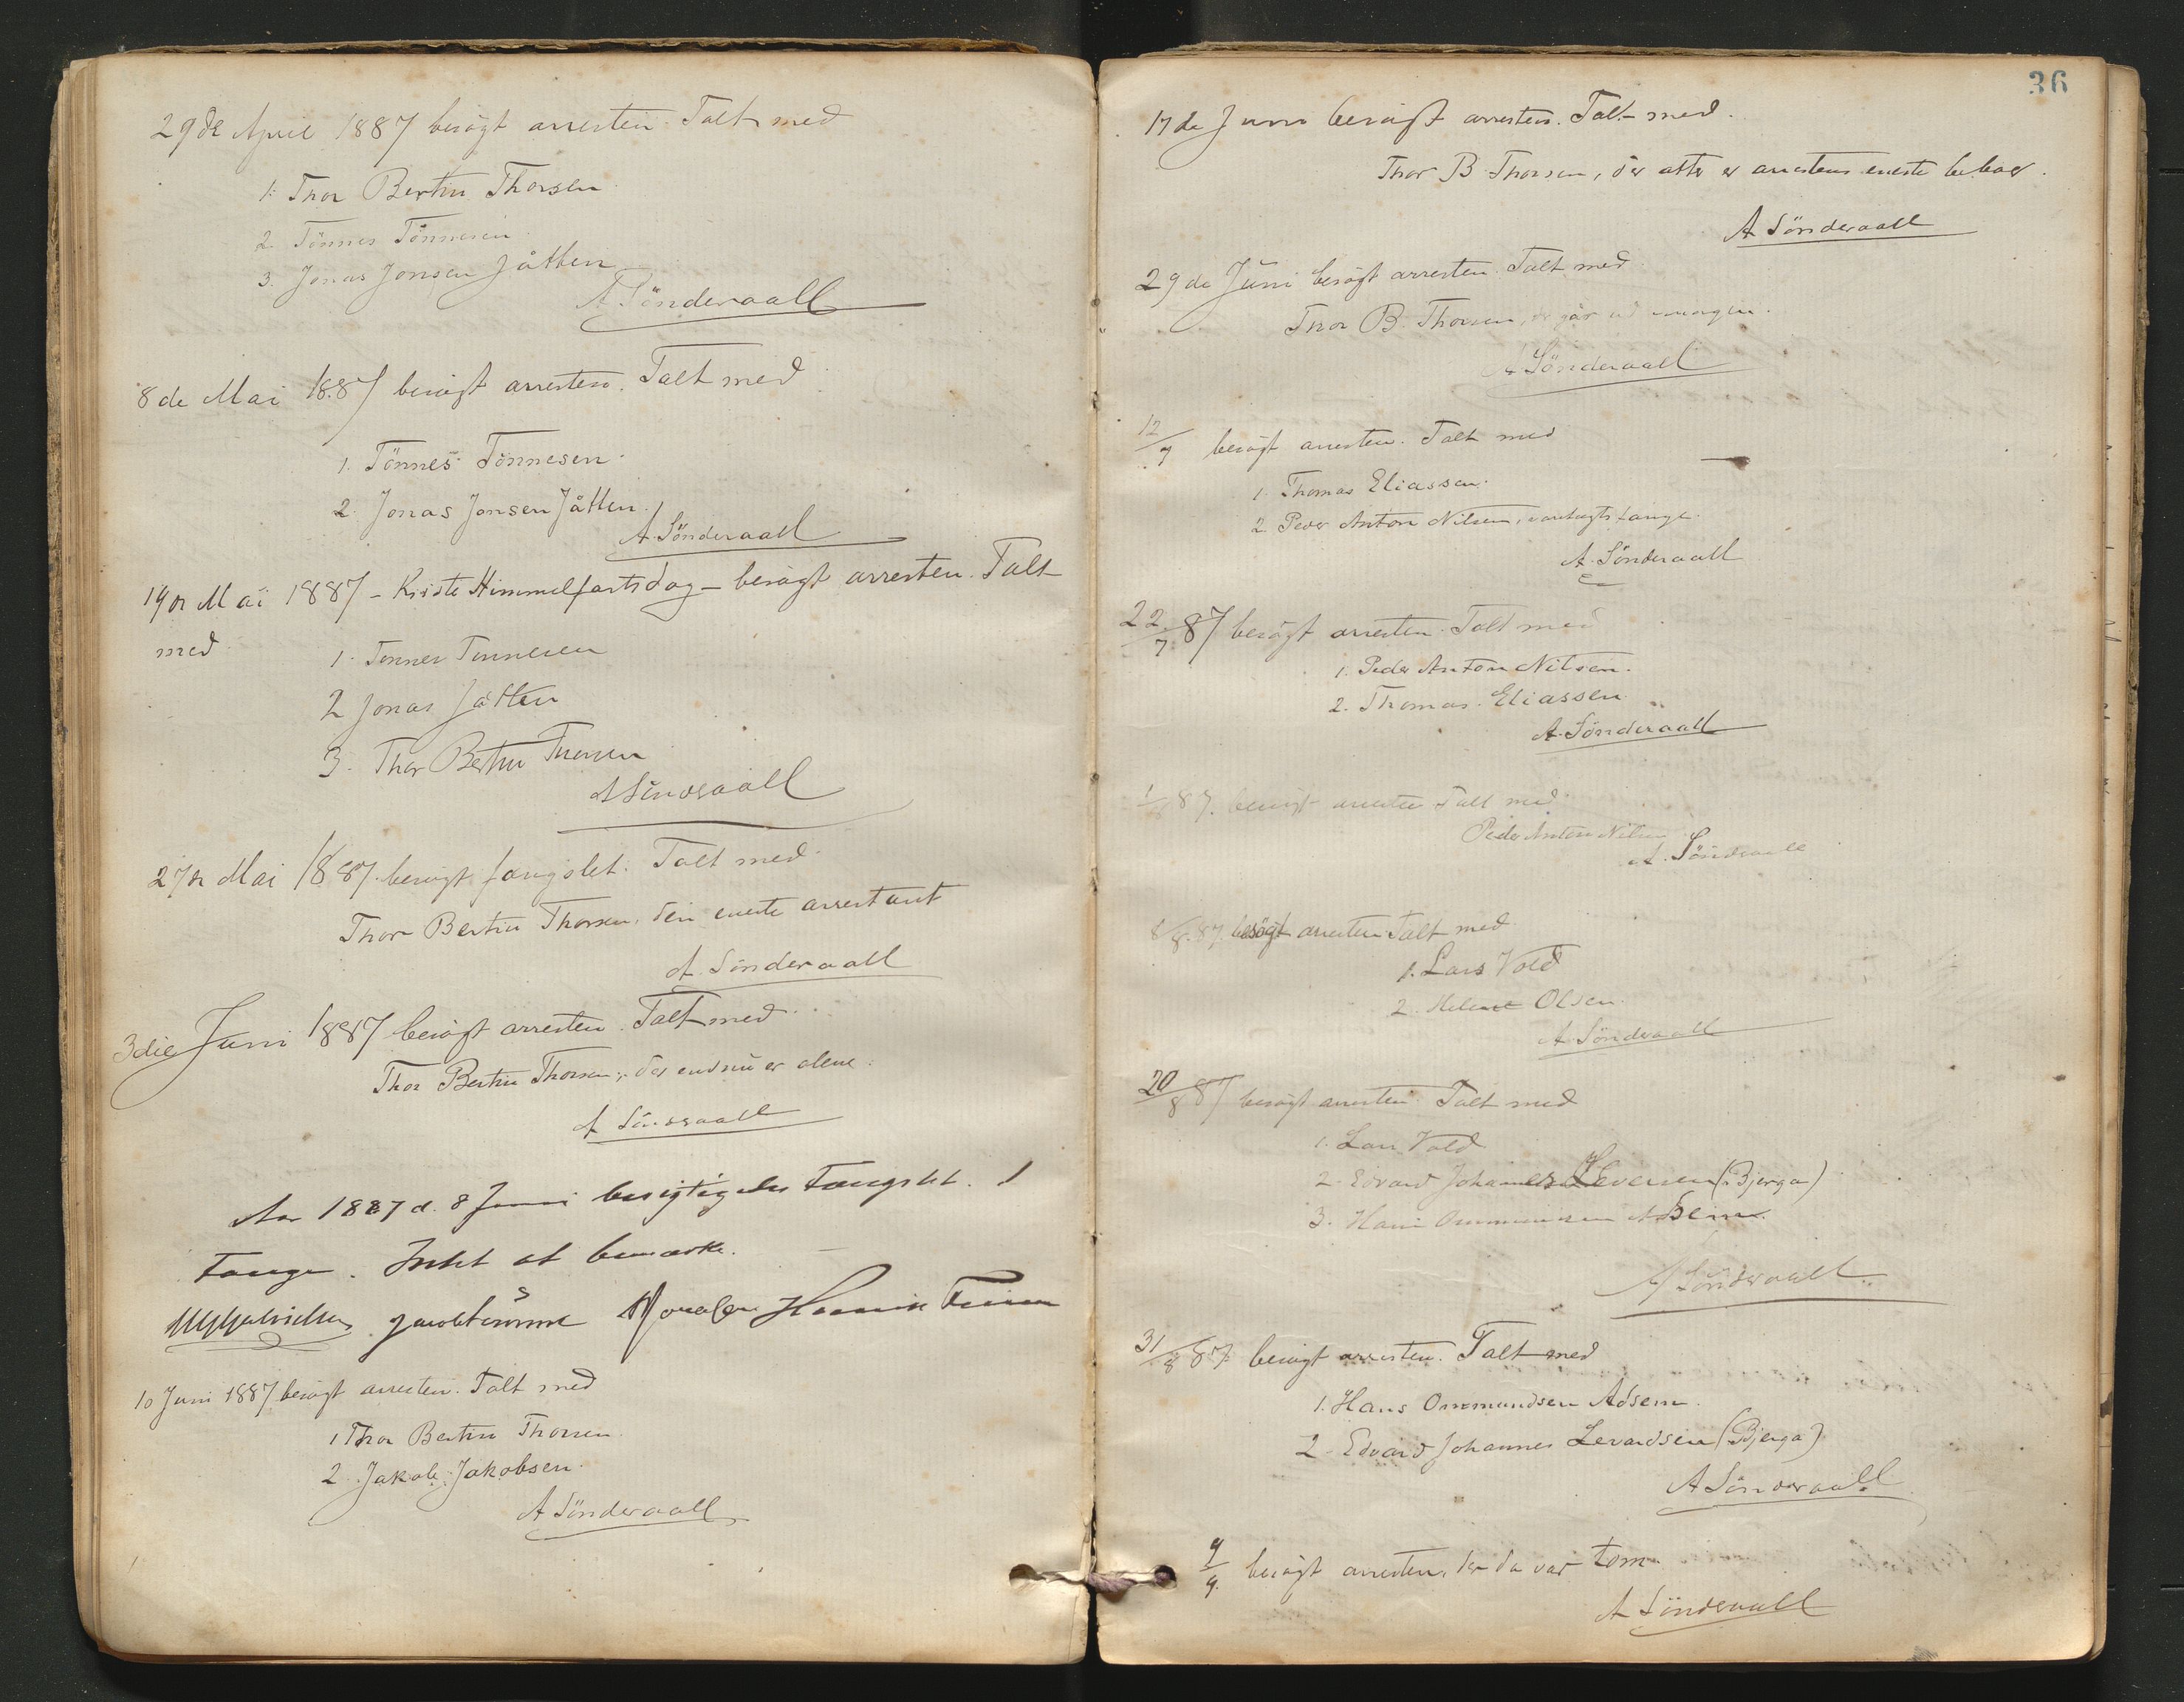 29de April 1887 besögt arresten. Talt med
1. Thor Bertin Thorsen
2. Tönnes Tönnesen
3. Jonas Jonsen Jåtten
A Sönderaall
8de Mai 1887 besögt arresten. Talt med
1. Tönnes Tönnesen.
2. Jonas Jonsen Jåtten.
A. Sönderaall
19de Mai 1887 - Kristi Himmelfartsdag - besögt arresten. Talt
med
1. Tönnes Tönnesen
2 Jonas Jåtten
3. Thor Bertin Thorsen
A Sönderaall
27de Mai 1887 besögt fængslet. Talt med
Thor Bertin Thorsen, den eneste arrestant
A. Sönderaall
3die Juni 1887 besögt arresten. Talt med
Thor Bertin Thorsen, der endnu er alene.
A Sönderaall
Aar 1887 d. 8 Juni besigtigedes Fængslet. 1
Fange. Intet at bemærke.
10 Juni 1887 besögt arresten. Talt med
1 Thor Bertin Thorsen.
2. Jakob Jakobsen.
A Sönderaall
36
17de Juni besögt arresten. Talt med.
Thor B Thorsen, der atter er arrestens eneste beboer.
A Sönderaall
29de Juni besögt arresten. Talt med
Thor B. Thorsen, der går ud imorgen.
A Sönderaall
12/7 besögt arresten. Talt med
1. Thomas Eliassen.
2. Peder Anton Nilsen, varetægtsfange.
A. Sönderaall
22/7 87 besögt arresten. Talt med
1. Peder Anton Nilsen.
2. Thomas Eliassen
A. Sönderaall
87. besögt arresten Talt med
Peder Anton Nilsen
A. Sönderaall
8/8. 87. besögt arresten Talt med
1. Lars Vold
2. Olsen.
A. Sönderaall
20/8 87 besögt arresten. Talt med
1. Lars Vold
2. Edvard Johannes (Bjerga)
3. Hans Ommundsen Adsem.
A Sönderaall
31/8 87 besögt arresten. Talt med
1. Hans Ommundsen Adsem.
2. Edvard Johannes Levardsen (Bjerga)
A Sönderaall
9/9. besögt arresten, der da var tom.
A Sönderaall